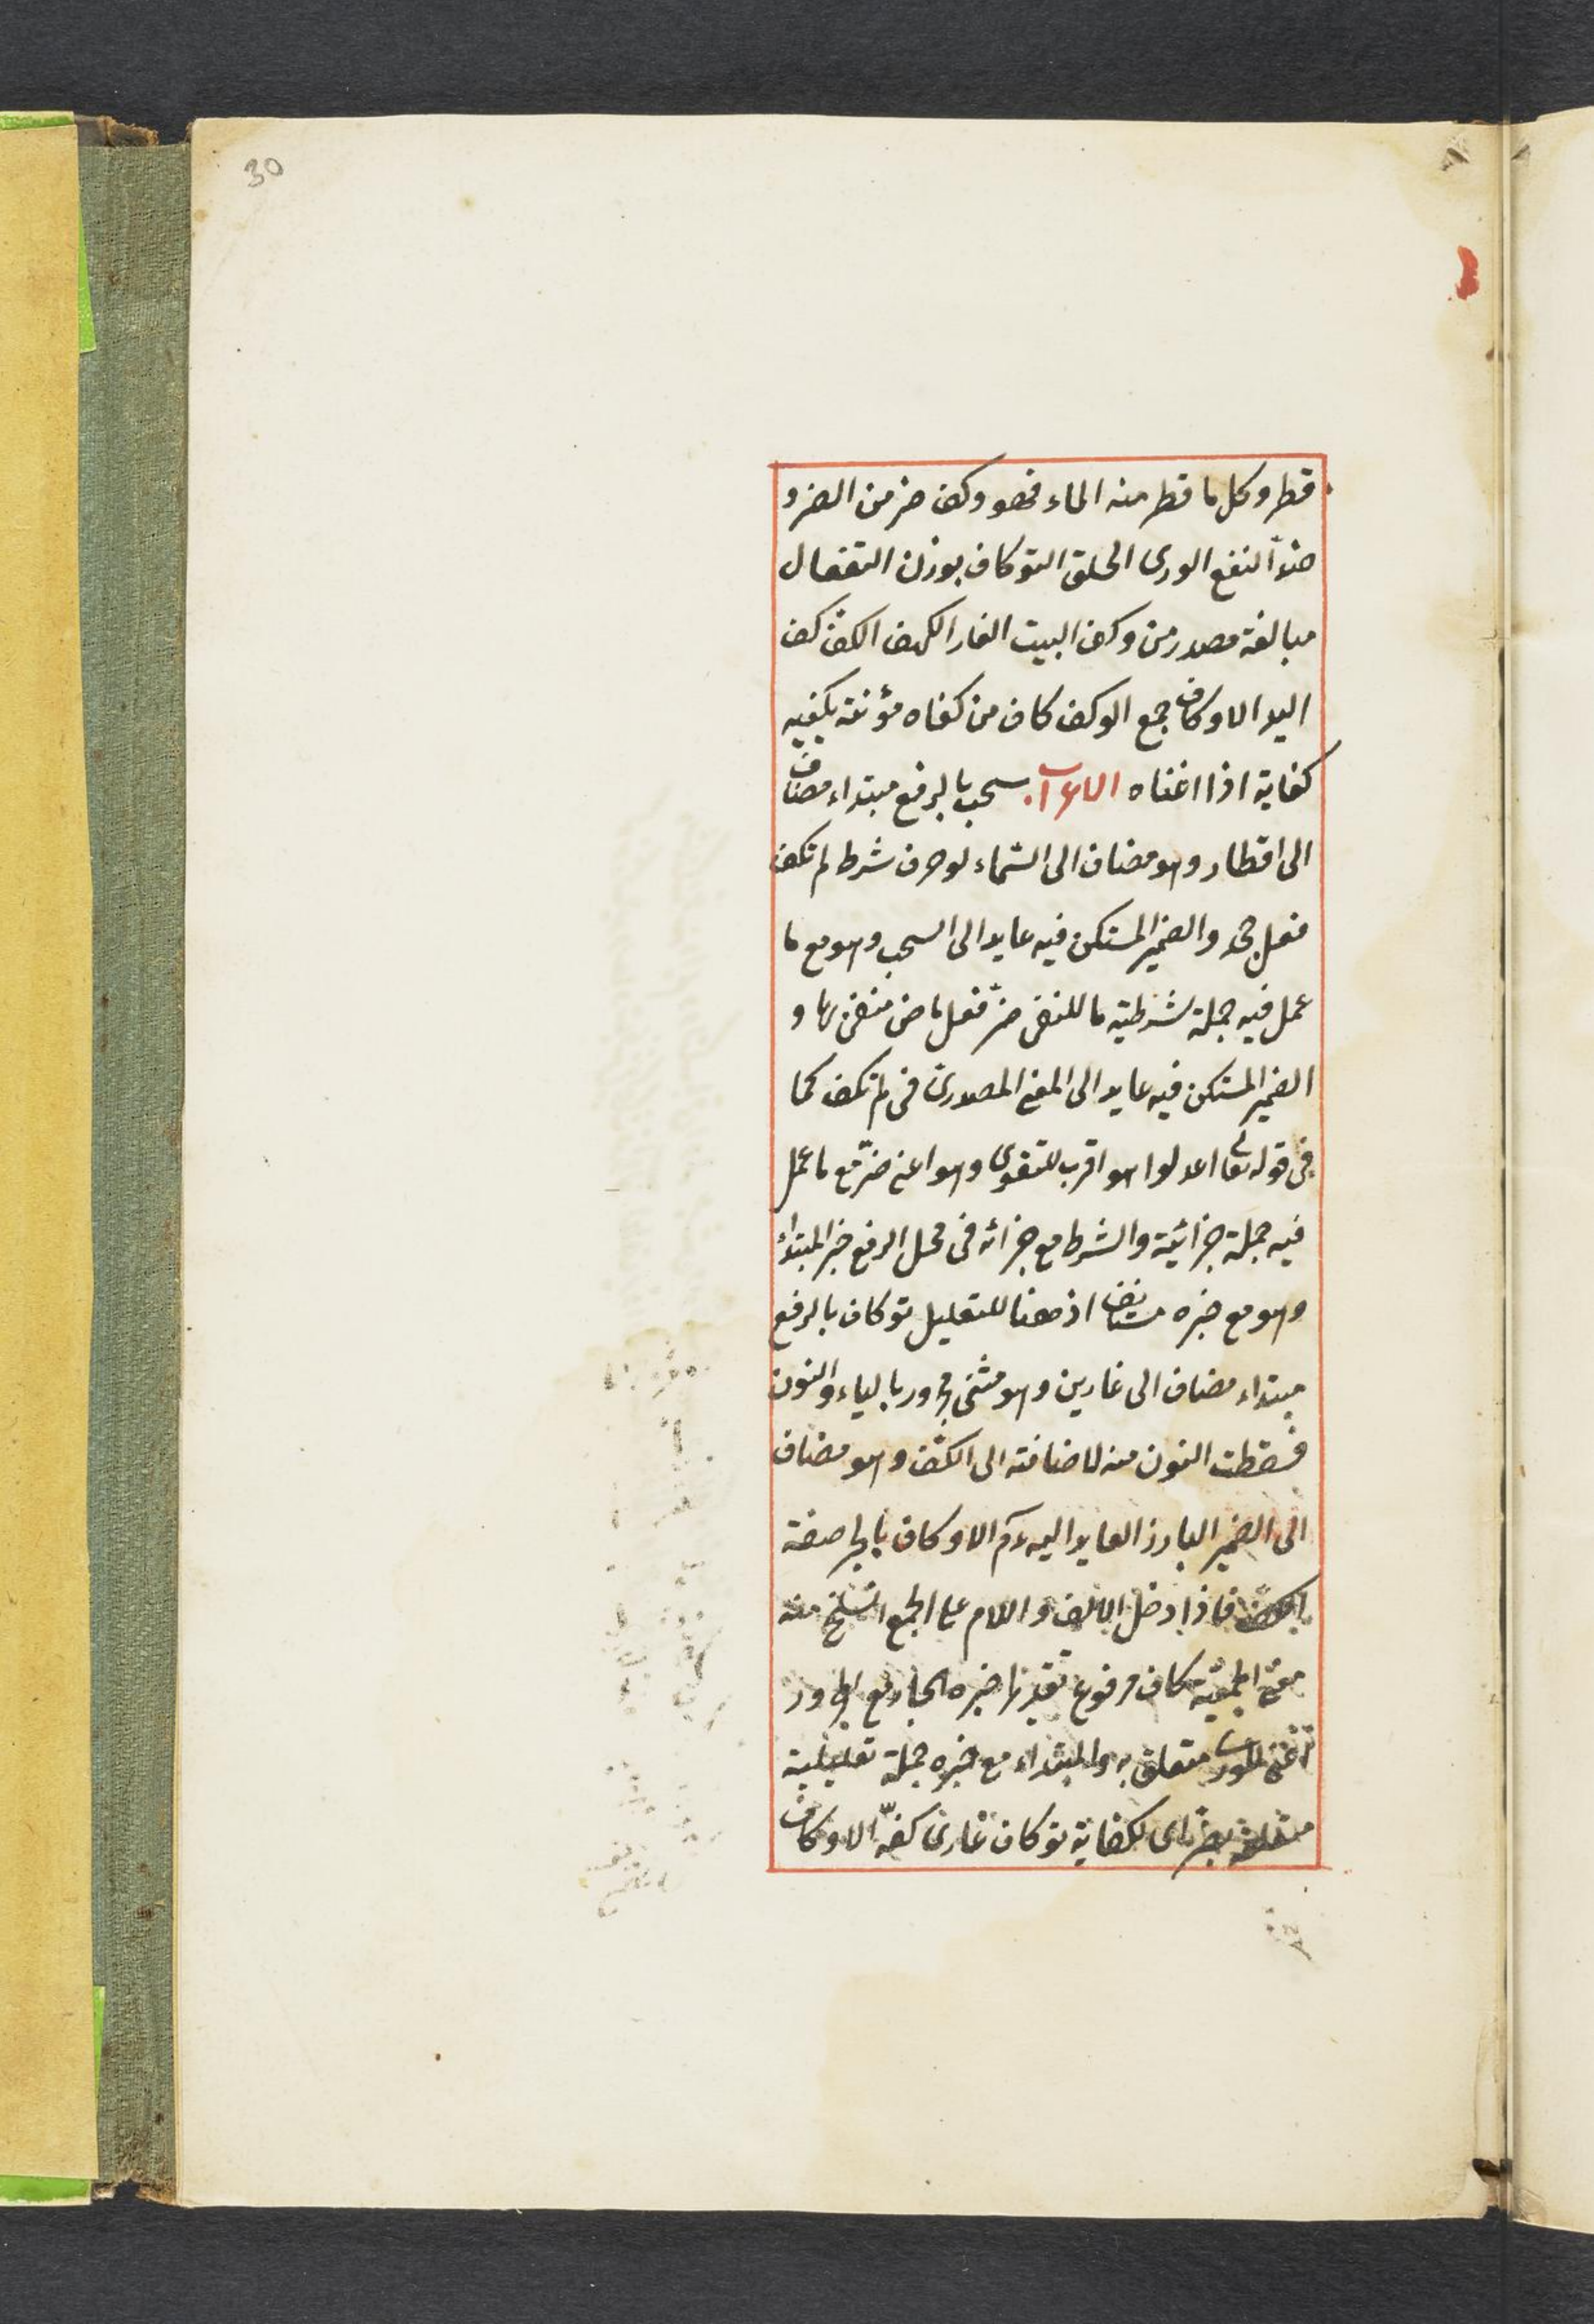 30
قطر وكل ما قطر منه الماء فهو وكف ضر من الضر و
ضد النفع الورى الخلق التوكاف بوزن التفعال
مبالغة مصدر من وكف البيت الغار الكهف الكف كف
اليد الاوكاف جمع الوكف كاف من كفاه مؤنته يكفيه
كفاية اذا اغناه الاعراب سحب بالرفع مبتداء مضاف
الى اقطار وهو مضاف الى السّماء لو حرف شرط لم تكف
فعل جحد والضمير المستكن فيه عايد الى السحب وهو مع ما
عمل فيه جملة شرطية ما للنفى ضرّ فعل ماض منفى بها و
الضمير المستكن فيه عايد الى المعنى المصدرى فى لم تكف كما
فى قوله تعالى اعدلوا هو اقرب للتقوى وهو اعنى ضرّ مع ما عمل
فيه جملة جزائية والشرط مع جزائه فى محل الرفع خبر المبتداء
وهو مع خبره مستانف اذ ههنا للتعليل توكاف بالرفع
مبتداء مضاف الى غارين وهو مثنى مجرور بالياء والنون
فسقطت النون منه لاضافته الى الكف وهو مضاف
الى الضمير البارز العايد اليه ءم الاوكاف بالجر صفة
الكف فاذا دخل الالف و اللام على الجمع انسلخ منه
معنى الجمعية كاف مرفوع تقديرا خبره الجار مع المجرور
اعنى للورى متعلق به والمبتداء مع خبره جملة تعليلية
متعلقة بضر اى لكفاية توكاف غارى كفّه الاوكاف